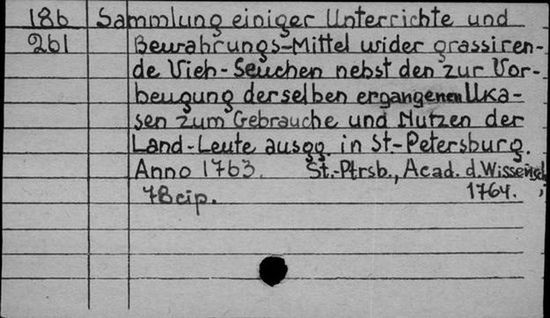 186 Sammlung einiger Unterrichte und
261 Bewahrungs-Mittel wider grassiren-
de Vieh-Seuchen nebst den zur Vor-
beugung derselben ergangenen Uka-
sen zum Gebrauche und Nutzen der
Land-Leute ausgg. in St-Petersburg.
Anno 1763. St.-Ptrsb., Acad. d. Wissensch.,
78 стр. 1764.